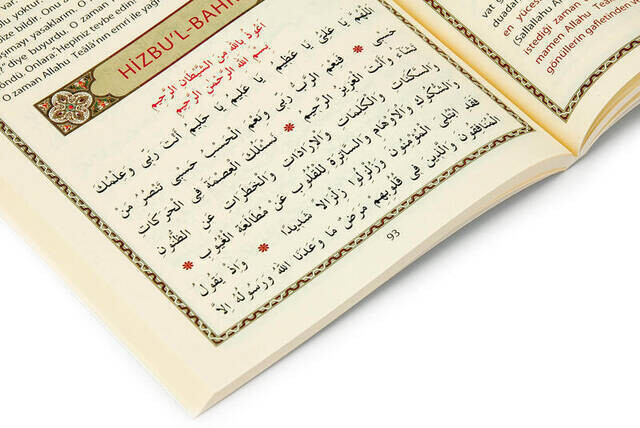 size bildir. Onu
aşmayı yasaklarım. O
" diye buyurdu. O zaman
dürdü. Onlara: "Hepiniz tevbe edin!
O zaman Allahu Teâlâ'nın emri ile yağ
HİZBU'L-BAHR
اَعُوذُ بِاللّٰهِ مِنَ الشَّيْطَانِ الرَّجِيمِ
بِسْمِ اللّٰهِ الرَّحْمٰنِ الرَّحِيمِ
اَللّٰهُمَّ يَا عَلِيُّ يَا عَظِيمُ يَا حَلِيمُ يَا عَلِيمُ اَنْتَ رَبِّي وَعِلْمُكَ
حَسْبِي * فَنِعْمَ الرَّبُّ رَبِّي وَنِعْمَ الْحَسْبُ حَسْبِي تَنْصُرُ مَنْ
تَشَاءُ وَاَنْتَ الْعَزِيزُ الرَّحِيمُ * نَسْئَلُكَ الْعِصْمَةَ فِي الْحَرَكَاتِ
وَالسَّكَنَاتِ وَالْكَلِمَاتِ وَالْاِرَادَاتِ وَالْخَطَرَاتِ عَنِ الظُّنُونِ
وَالشُّكُوكِ وَالْاَوْهَامِ وَالسَّاتِرَةِ لِلْقُلُوبِ عَنْ مُطَالَعَةِ الْغُيُوبِ *
فَقَدِ ابْتُلِيَ الْمُؤْمِنُونَ وَزُلْزِلُوا زِلْزَالًا شَدِيدًا * وَاِذْ يَقُولُ
الْمُنَافِقُونَ وَالَّذِينَ فِي قُلُوبِهِمْ مَرَضٌ مَا وَعَدَنَا اللّٰهُ وَرَسُولُهُ اِلَّا
93
en yüces
(Sallallahu A
istediği zaman
mamen Allahu Teâlâ
gönüllerin gafletinden